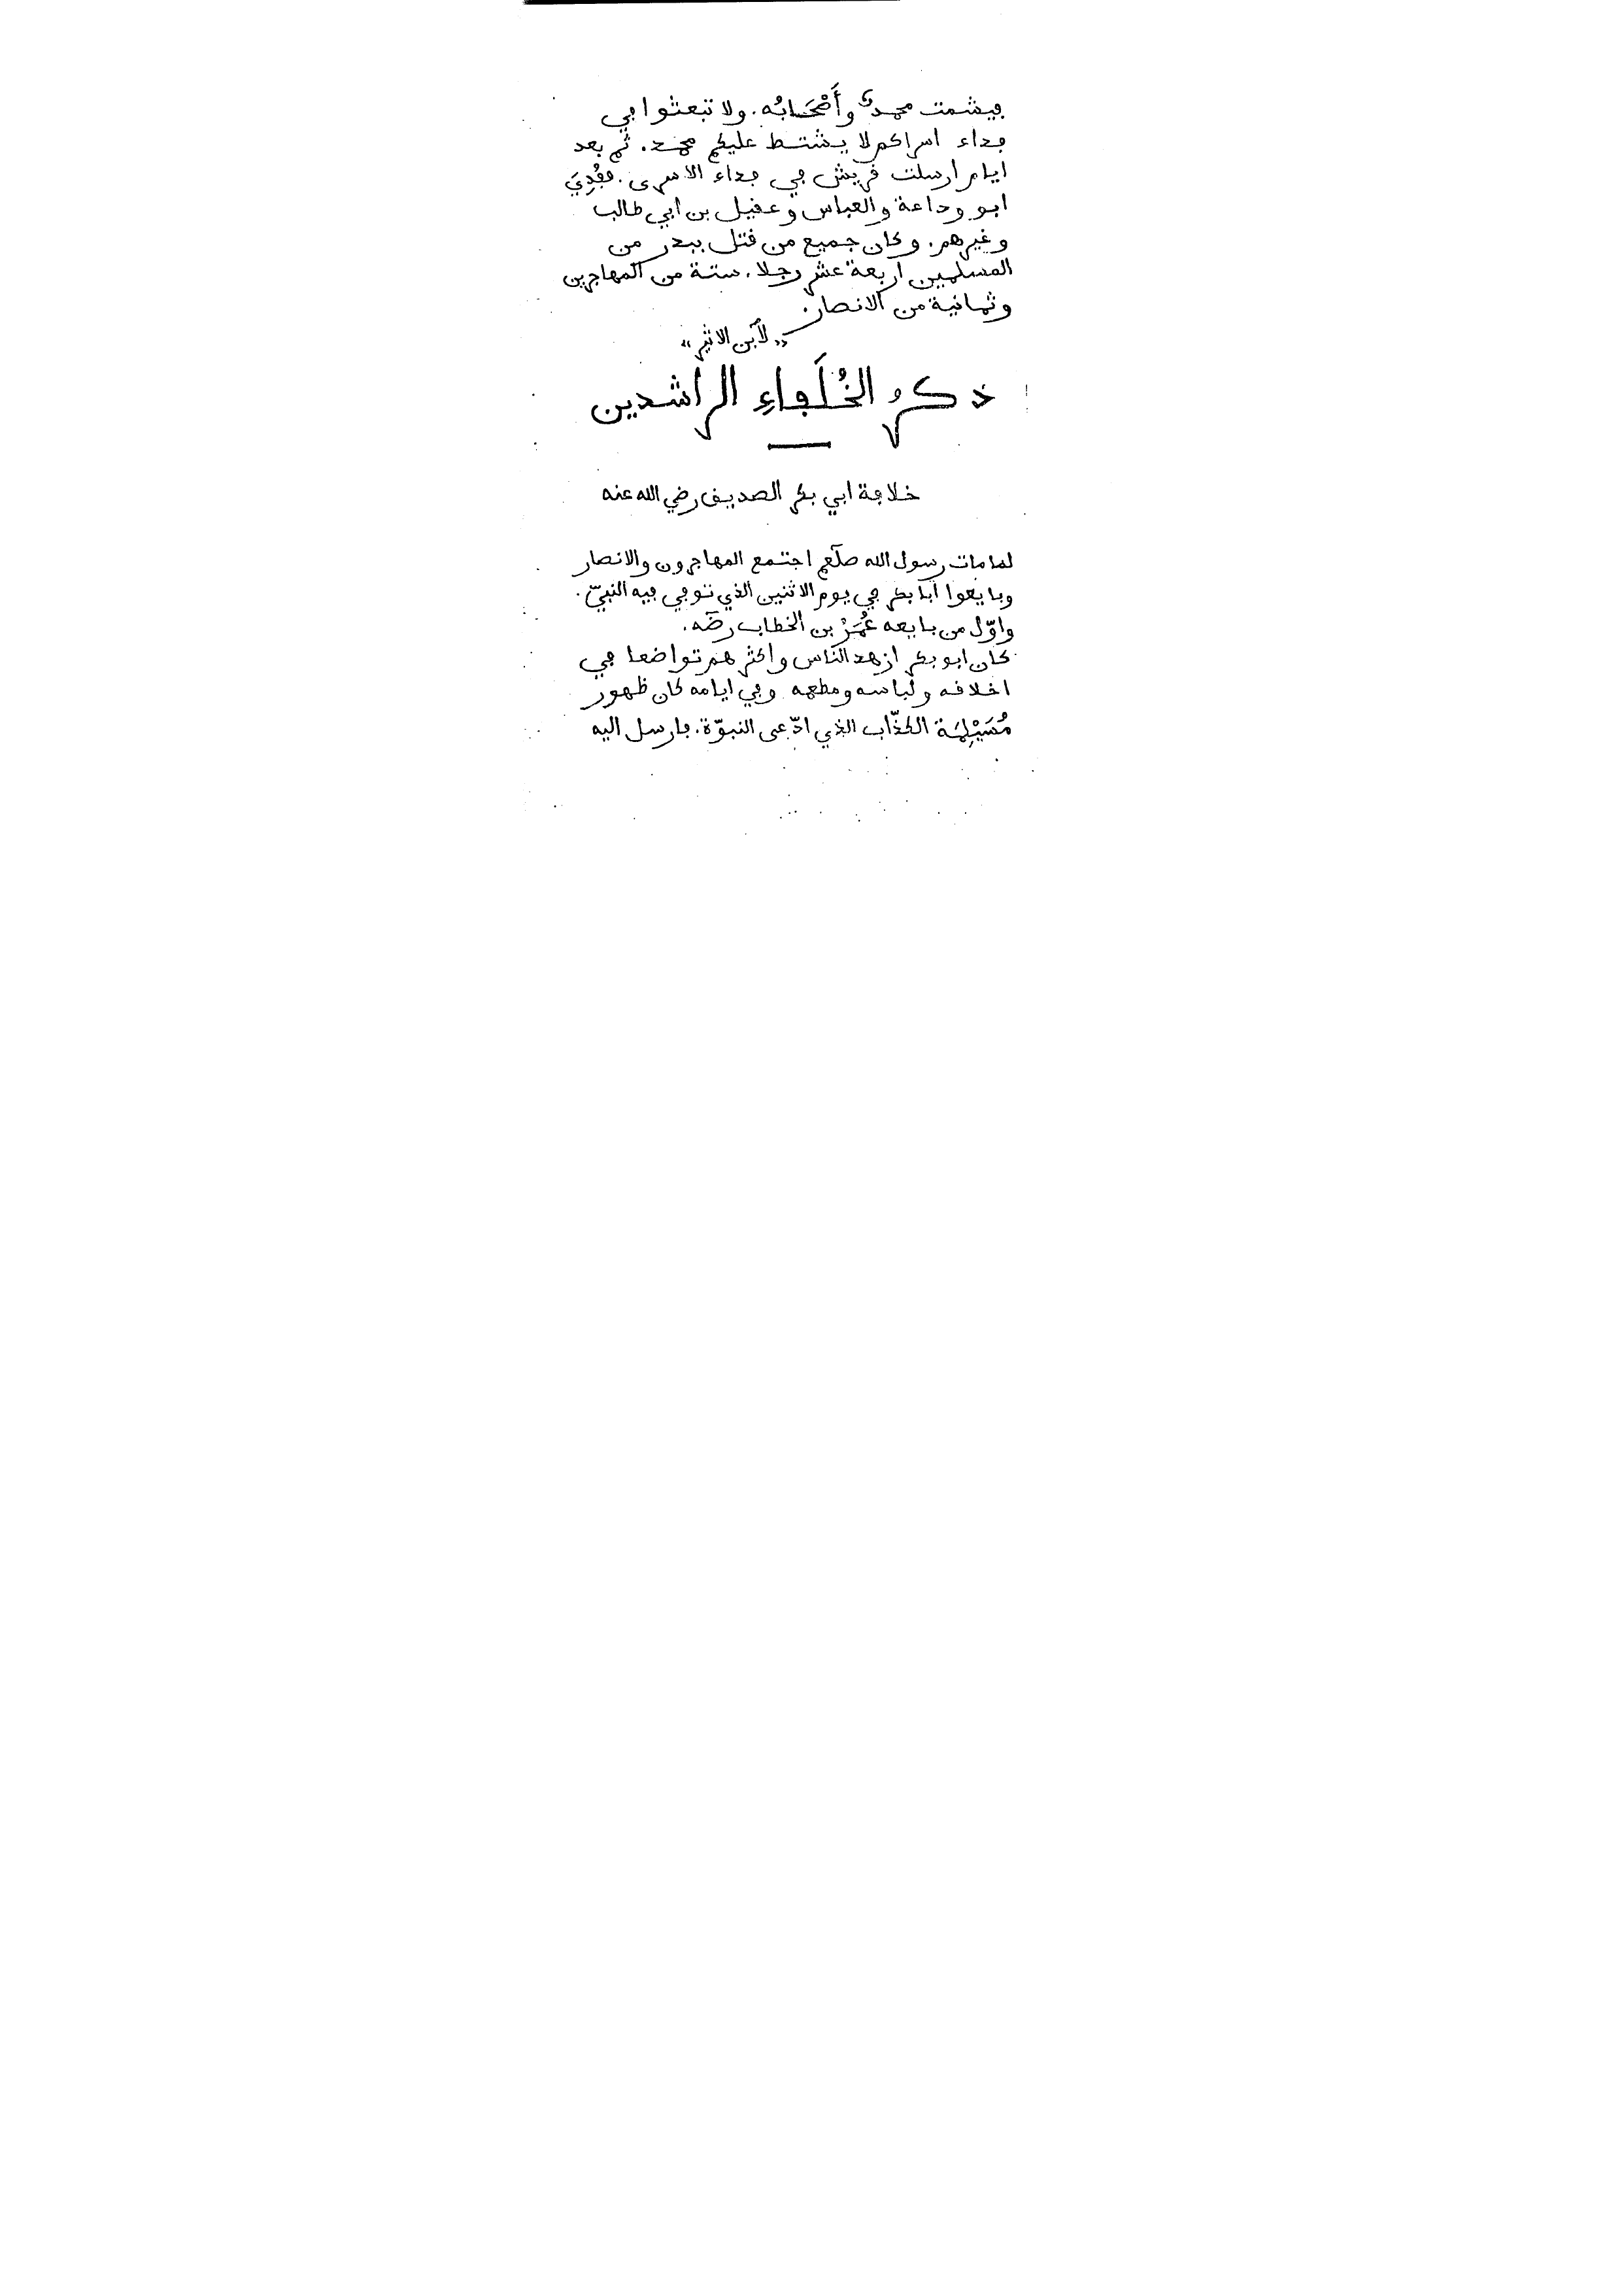 فيشمت محمدٌ وأَصْحَابُه. ولا تبعثوا في
فداء اسراكم لا يشتط عليكم محمد. ثم بعد
ايام ارسلت قريش في فداء الاسرى. ففُدِيَ
ابو وداعة والعباس وعقيل بن ابي طالب
وغيرهم. وكان جميع من قتل ببدر من
المسلمين اربعة عشر رجلا. ستة من المهاجرين
وثمانية من الانصار.
«لابن الاثير»
ذكرُ الخُلَفاءِ الراشدين
خلافة ابي بكر الصديق رضي الله عنه
لما مات رسول الله صلعم اجتمع المهاجرون والانصار
وبايعوا ابا بكر في يوم الاثنين الذي توفي فيه النبيّ.
واوّل من بايعه عُمَرُ بن الخطاب رضه.
كان ابو بكر ازهد الناس واكثرهم تواضعا في
اخلاقه ولباسه ومطعمه وفي ايامه كان ظهور
مُسَيْلِمَة الكذّاب الذي ادّعى النبوّة. فارسل اليه